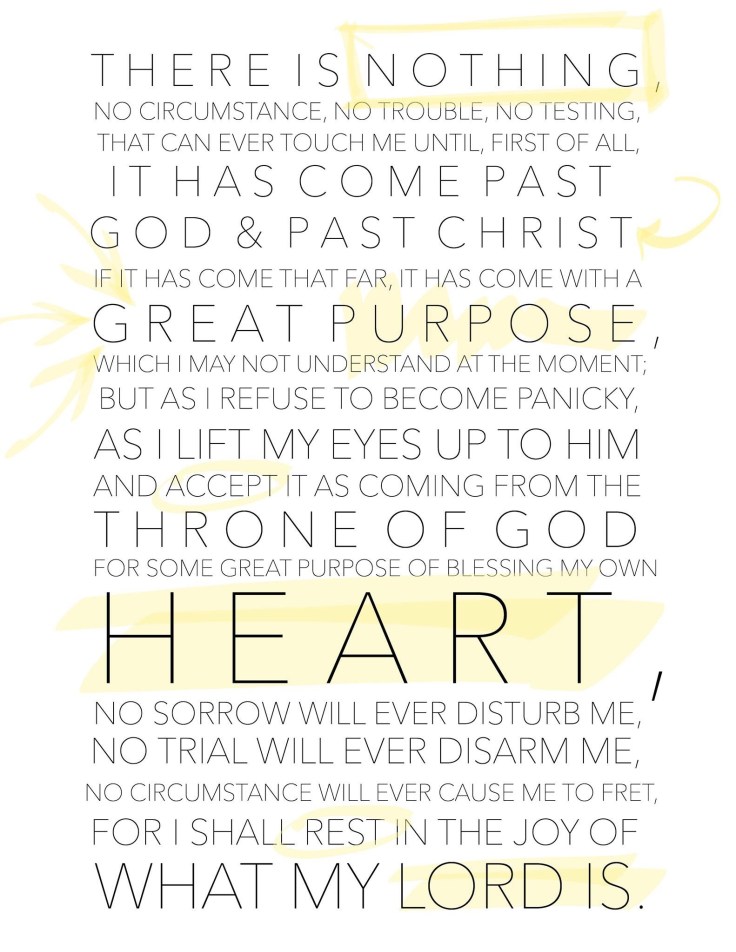 THERE IS NOTHING,
NO CIRCUMSTANCE, NO TROUBLE, NO TESTING,
THAT CAN EVER TOUCH ME UNTIL, FIRST OF ALL,
IT HAS COME PAST
GOD & PAST CHRIST
IF IT HAS COME THAT FAR, IT HAS COME WITH A
GREAT PURPOSE,
WHICH I MAY NOT UNDERSTAND AT THE MOMENT;
BUT AS I REFUSE TO BECOME PANICKY,
AS I LIFT MY EYES UP TO HIM
AND ACCEPT IT AS COMING FROM THE
THRONE OF GOD
FOR SOME GREAT PURPOSE OF BLESSING MY OWN
HEART,
NO SORROW WILL EVER DISTURB ME,
NO TRIAL WILL EVER DISARM ME,
NO CIRCUMSTANCE WILL EVER CAUSE ME TO FRET,
FOR I SHALL REST IN THE JOY OF
WHAT MY LORD IS.